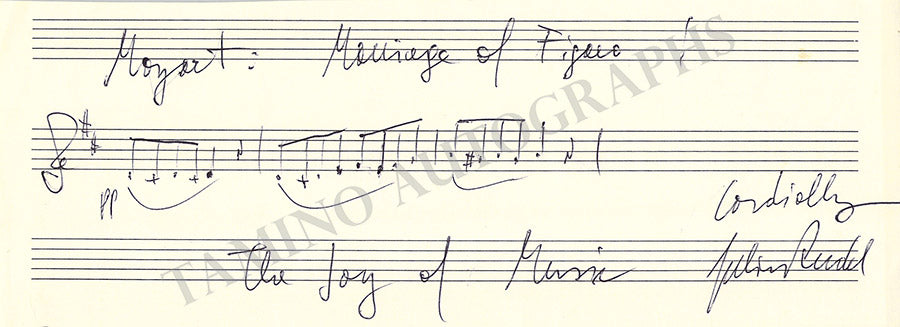 Mozart: Marriage of Figaro
pp
Cordially
The Joy of Music Julius Rudel
TAMINO AUTOGRAPHS